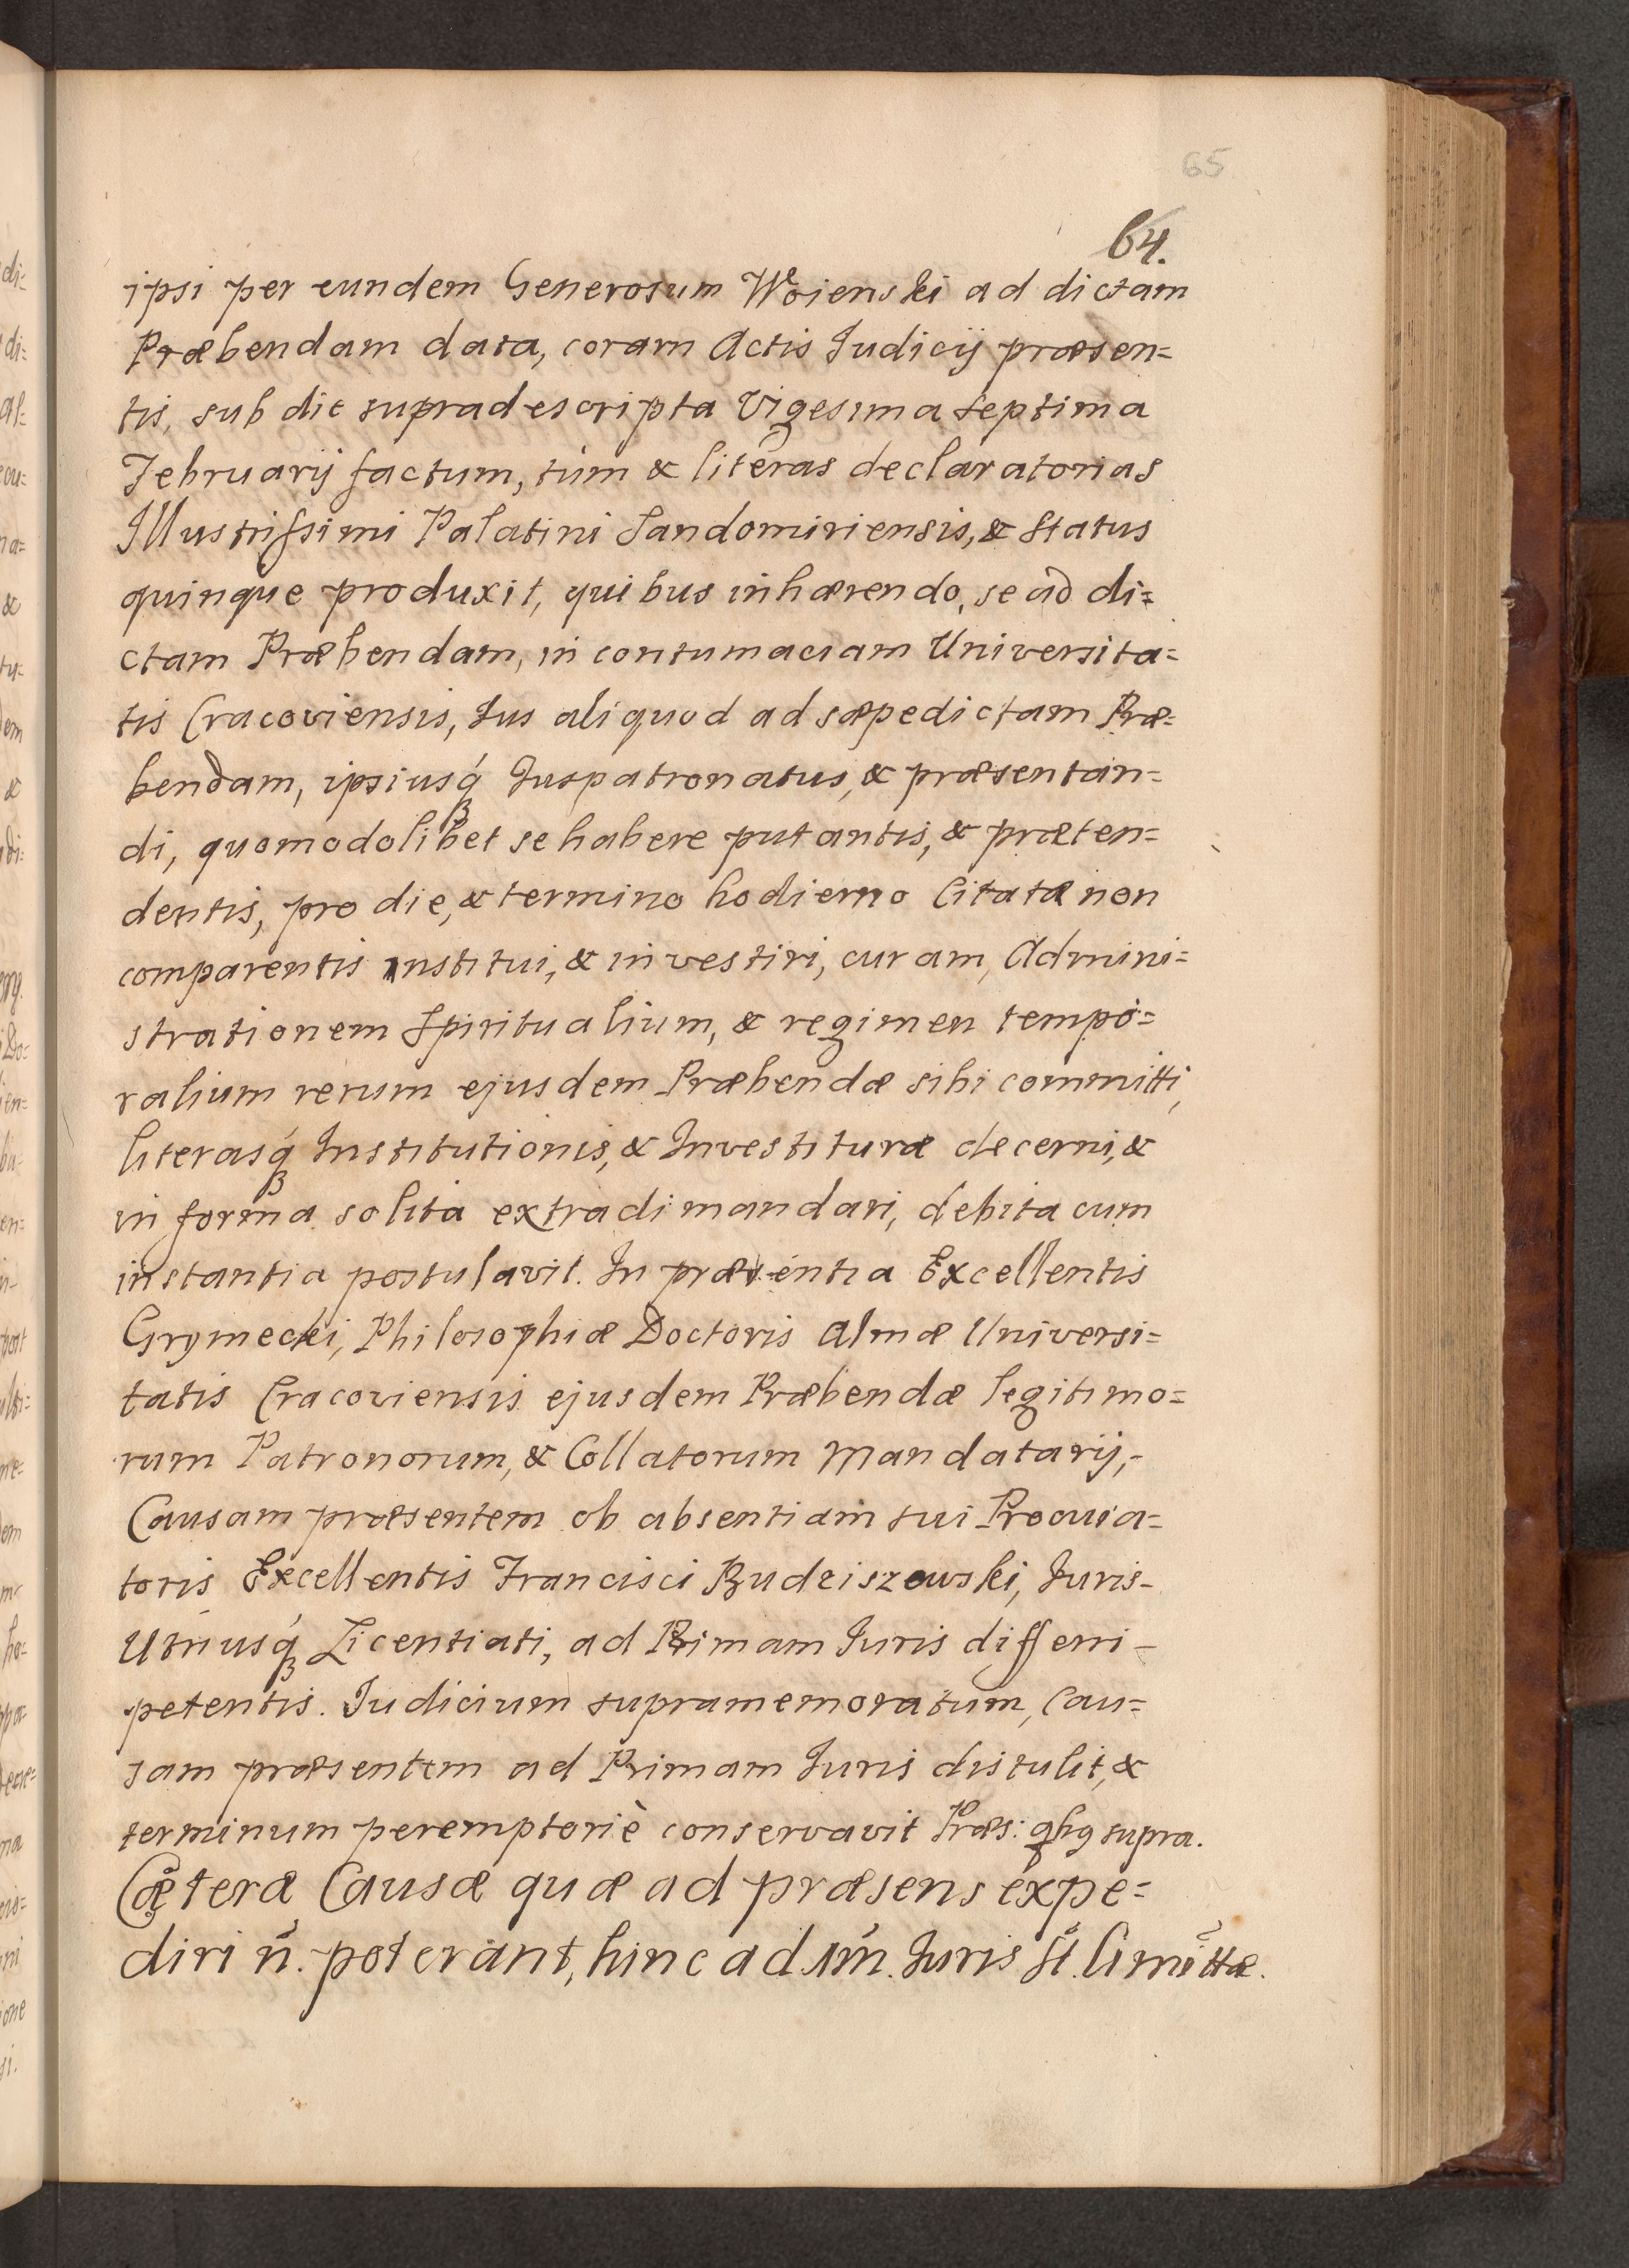 65
64.
ipsi per eundem Generosum Woienski ad dictam
Præbendam data, coram Actis Judicij præsen=
tis, sub die supradescripta Vigesima septima
Februarij factum, tùm & literas declaratorias
Illustrissimi Palatini Sandomiriensis, & status
quinque produxit, quibus inhærendo, se ad di=
ctam Præbendam, in contumaciam Universita=
tis Cracoviensis, Jus aliquod ad sæpedictam Præ=
bendam, ipsiusq́ Juspatronatus, & præsentan=
di, quomodolibet se habere putantis, & præten=
dentis, pro die, & termino hodierno Citatæ non
comparentis institui, & investiri, curam, Admini=
strationem Spiritualium, & regimen tempo=
ralium rerum ejusdem Præbendæ sibi committi,
literasq́ Institutionis, & Investituræ decerni, &
in forma solita extradi mandari, debita cum
instantia postulavit. In præsentia Excellentis
Grymecki, Philosophiæ Doctoris Almæ Universi=
tatis Cracoviensis ejusdem Præbendæ legitimo=
rum Patronorum, & Collatorum Mandatarij,-
Causam præsentem ob absentiam sui Procura=
toris Excellentis Francisci Budziszewski, Juris-
Utriusq́ Licentiati, ad Primam Juris differri-
petentis. Judicium supramemoratum, Cau=
sam præsentem ad Primam Juris distulit, &
terminum peremptoriè conservavit Præs: qbg supra.
Cæteræ Causæ quæ ad præsens expe=
diri ñ. poterant, hinc ad 1m̃. Juris st̃. limittæ.